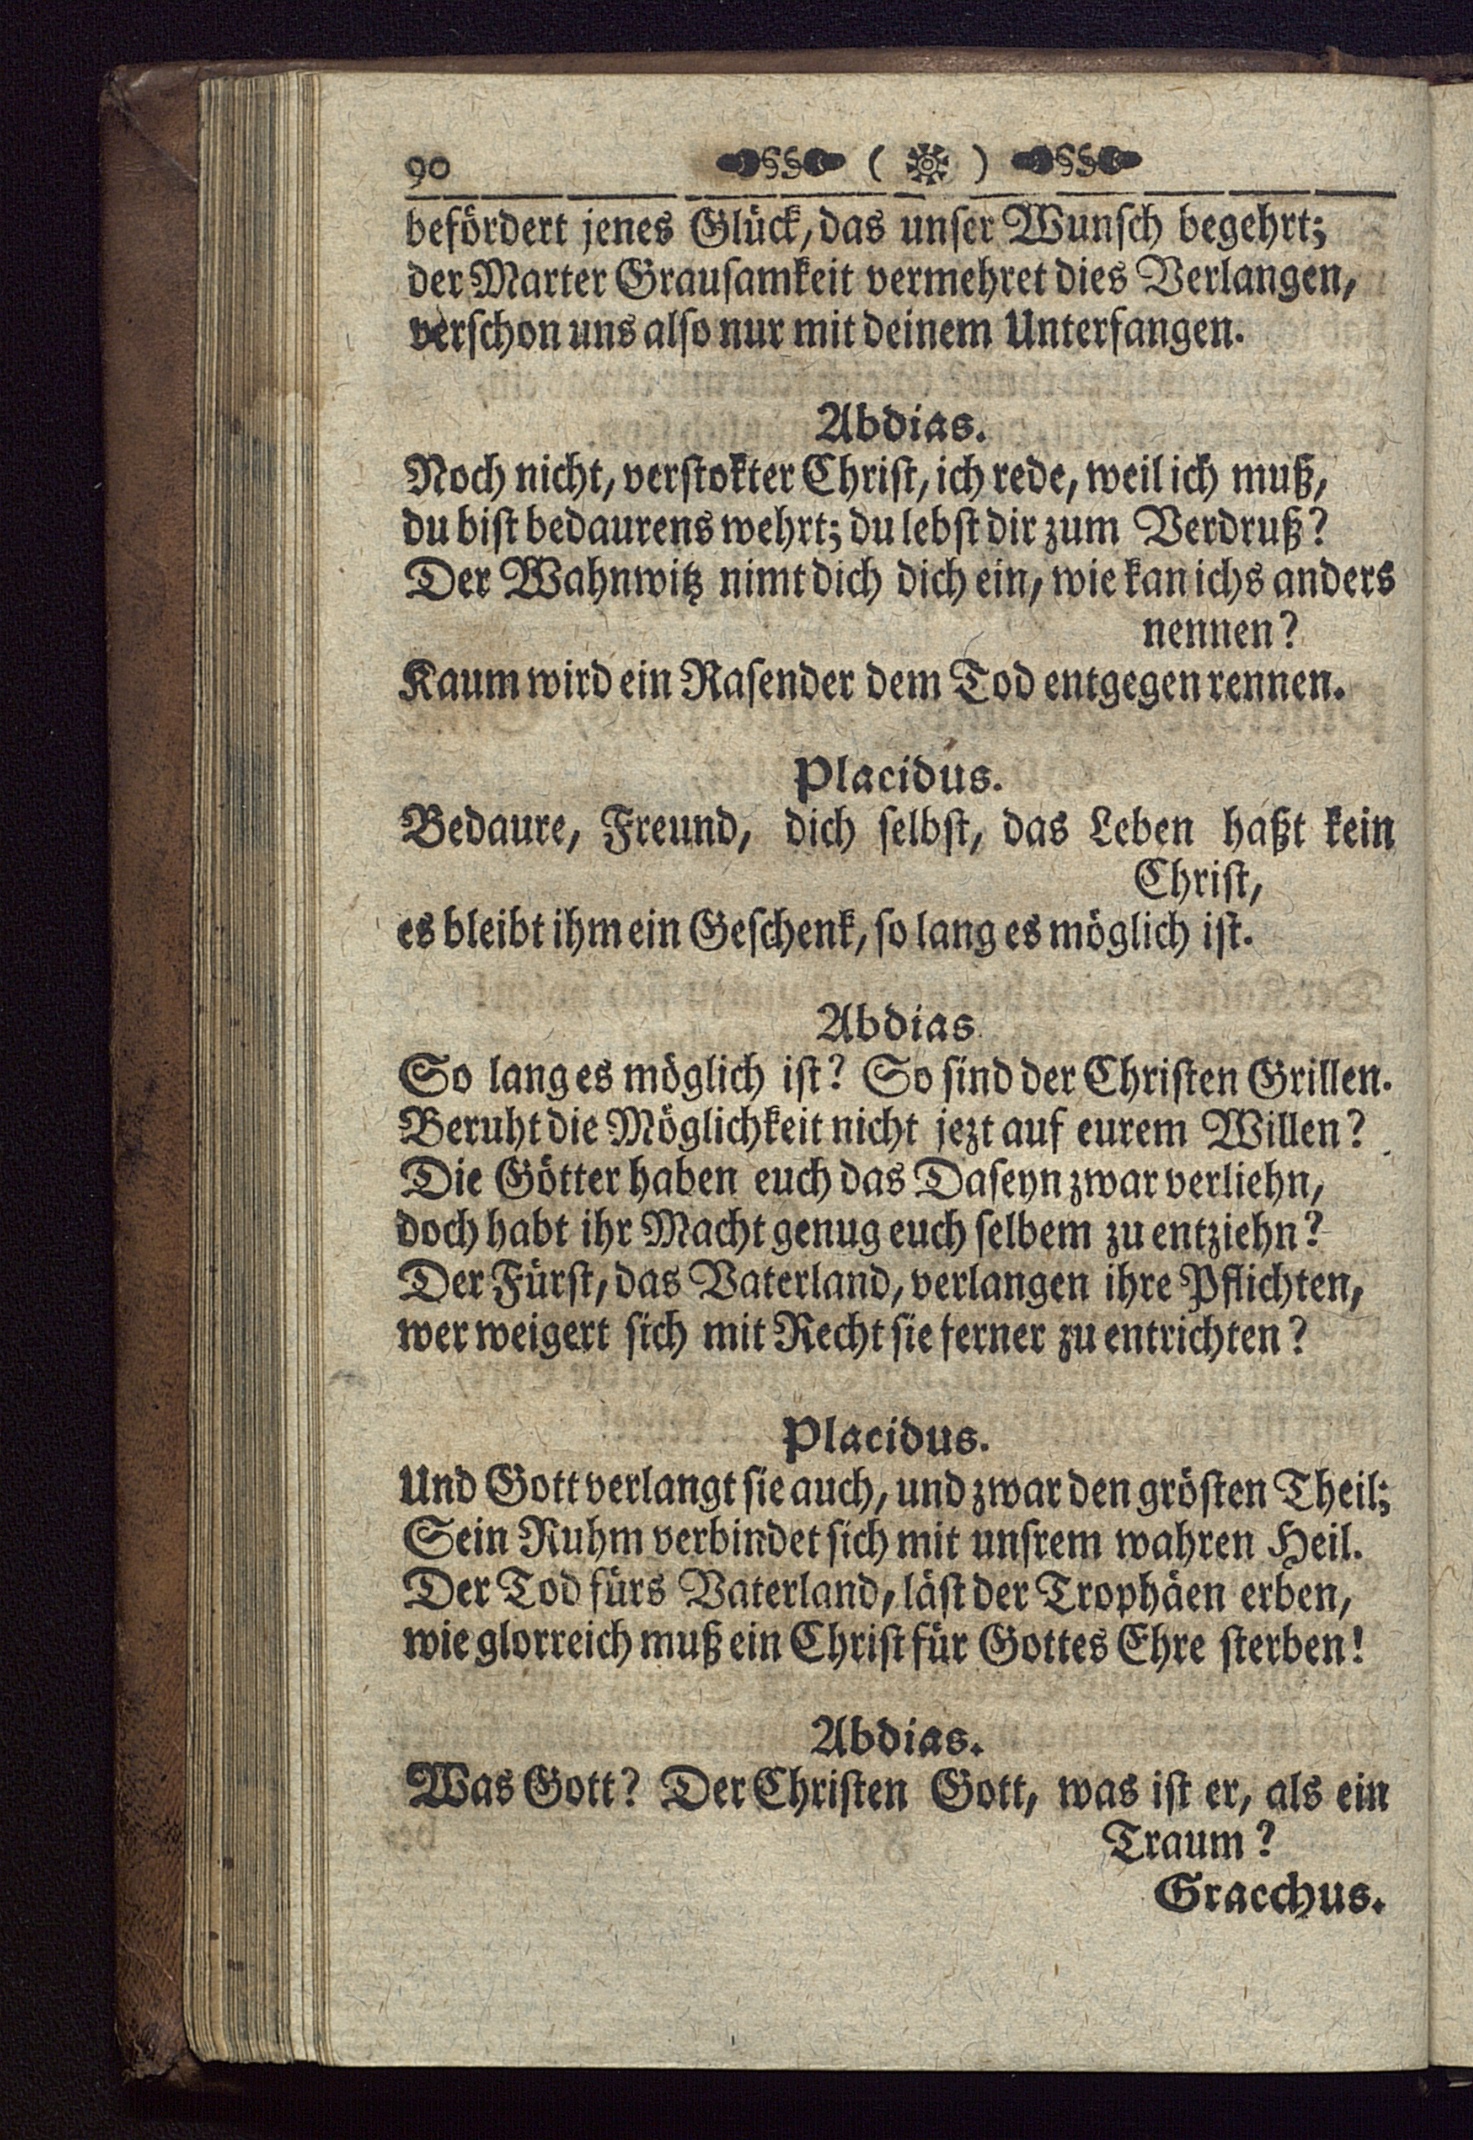 90 ( )
befördert jenes Glück, das unser Wunsch begehrt;
der Marter Grausamkeit vermehret dies Verlangen,
verschon uns also nur mit deinem Unterfangen.
Abdias.
Noch nicht, verstokter Christ, ich rede, weil ich muß,
du bist bedaurens wehrt; du lebst dir zum Verdruß?
Der Wahnwitz nimt dich dich ein, wie kan ichs anders
nennen?
Kaum wird ein Rasender dem Tod entgegen rennen.
Placidus.
Bedaure, Freund, dich selbst, das Leben haßt kein
Christ,
es bleibt ihm ein Geschenk, so lang es möglich ist.
Abdias
So lang es möglich ist? So sind der Christen Grillen.
Beruht die Möglichkeit nicht jezt auf eurem Willen?
Die Götter haben euch das Daseyn zwar verliehn,
doch habt ihr Macht genug euch selbem zu entziehn?
Der Fürst, das Vaterland, verlangen ihre Pflichten,
wer weigert sich mit Recht sie ferner zu entrichten?
Placidus.
Und Gott verlangt sie auch, und zwar den grösten Theil;
Sein Ruhm verbindet sich mit unsrem wahren Heil.
Der Tod fürs Vaterland, läst der Trophäen erben,
wie glorreich muß ein Christ für Gottes Ehre sterben!
Abdias.
Was Gott? Der Christen Gott, was ist er, als ein
Traum?
Gracchus.